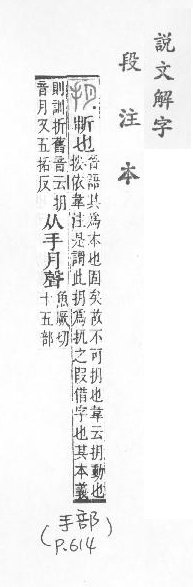 說文解字
段注本
抈.㪿也 晉語其爲本也固矣故不可抈也韋云抈動也
按依韋注是謂此抈爲扤之假借字也其本義
則訓折舊音云抈
音月又五拓反
从手月聲 魚厥切
十五部
(手部
P.614)